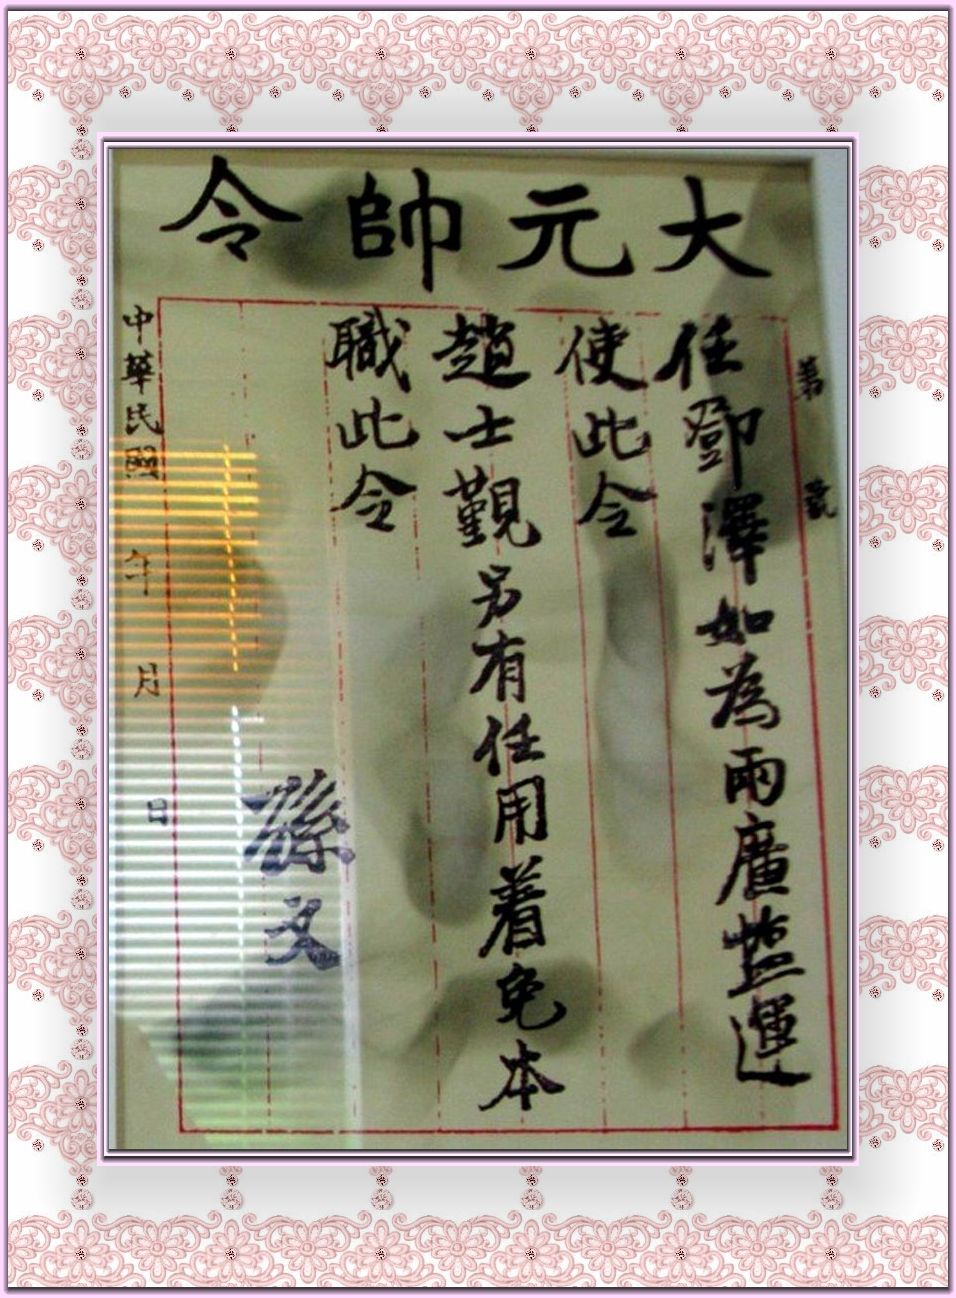 大元帥令
第 號
任鄧澤如為兩廣鹽運
使此令
趙士覲另有任用着免本
職此令
孫文
中華民國 年 月 日